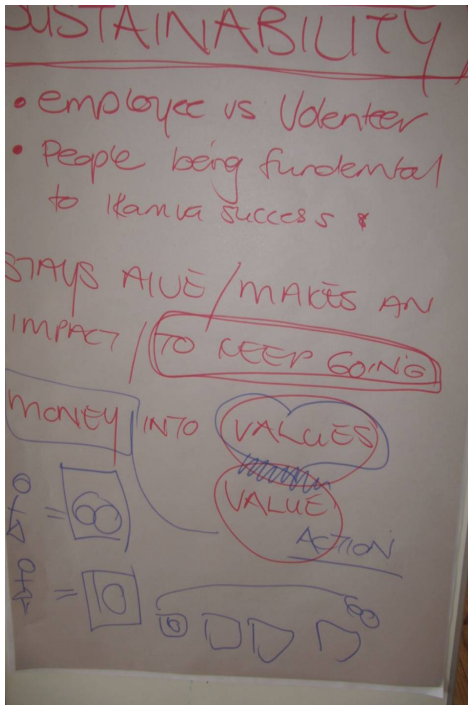 SUSTAINABILITY
• employee vs Volenteer
• People being fundemental
to Kamva success
STAYS ALIVE / MAKES AN
IMPACT / TO KEEP GOING
MONEY INTO VALUES
VALUE
ACTION
= 8
= 10